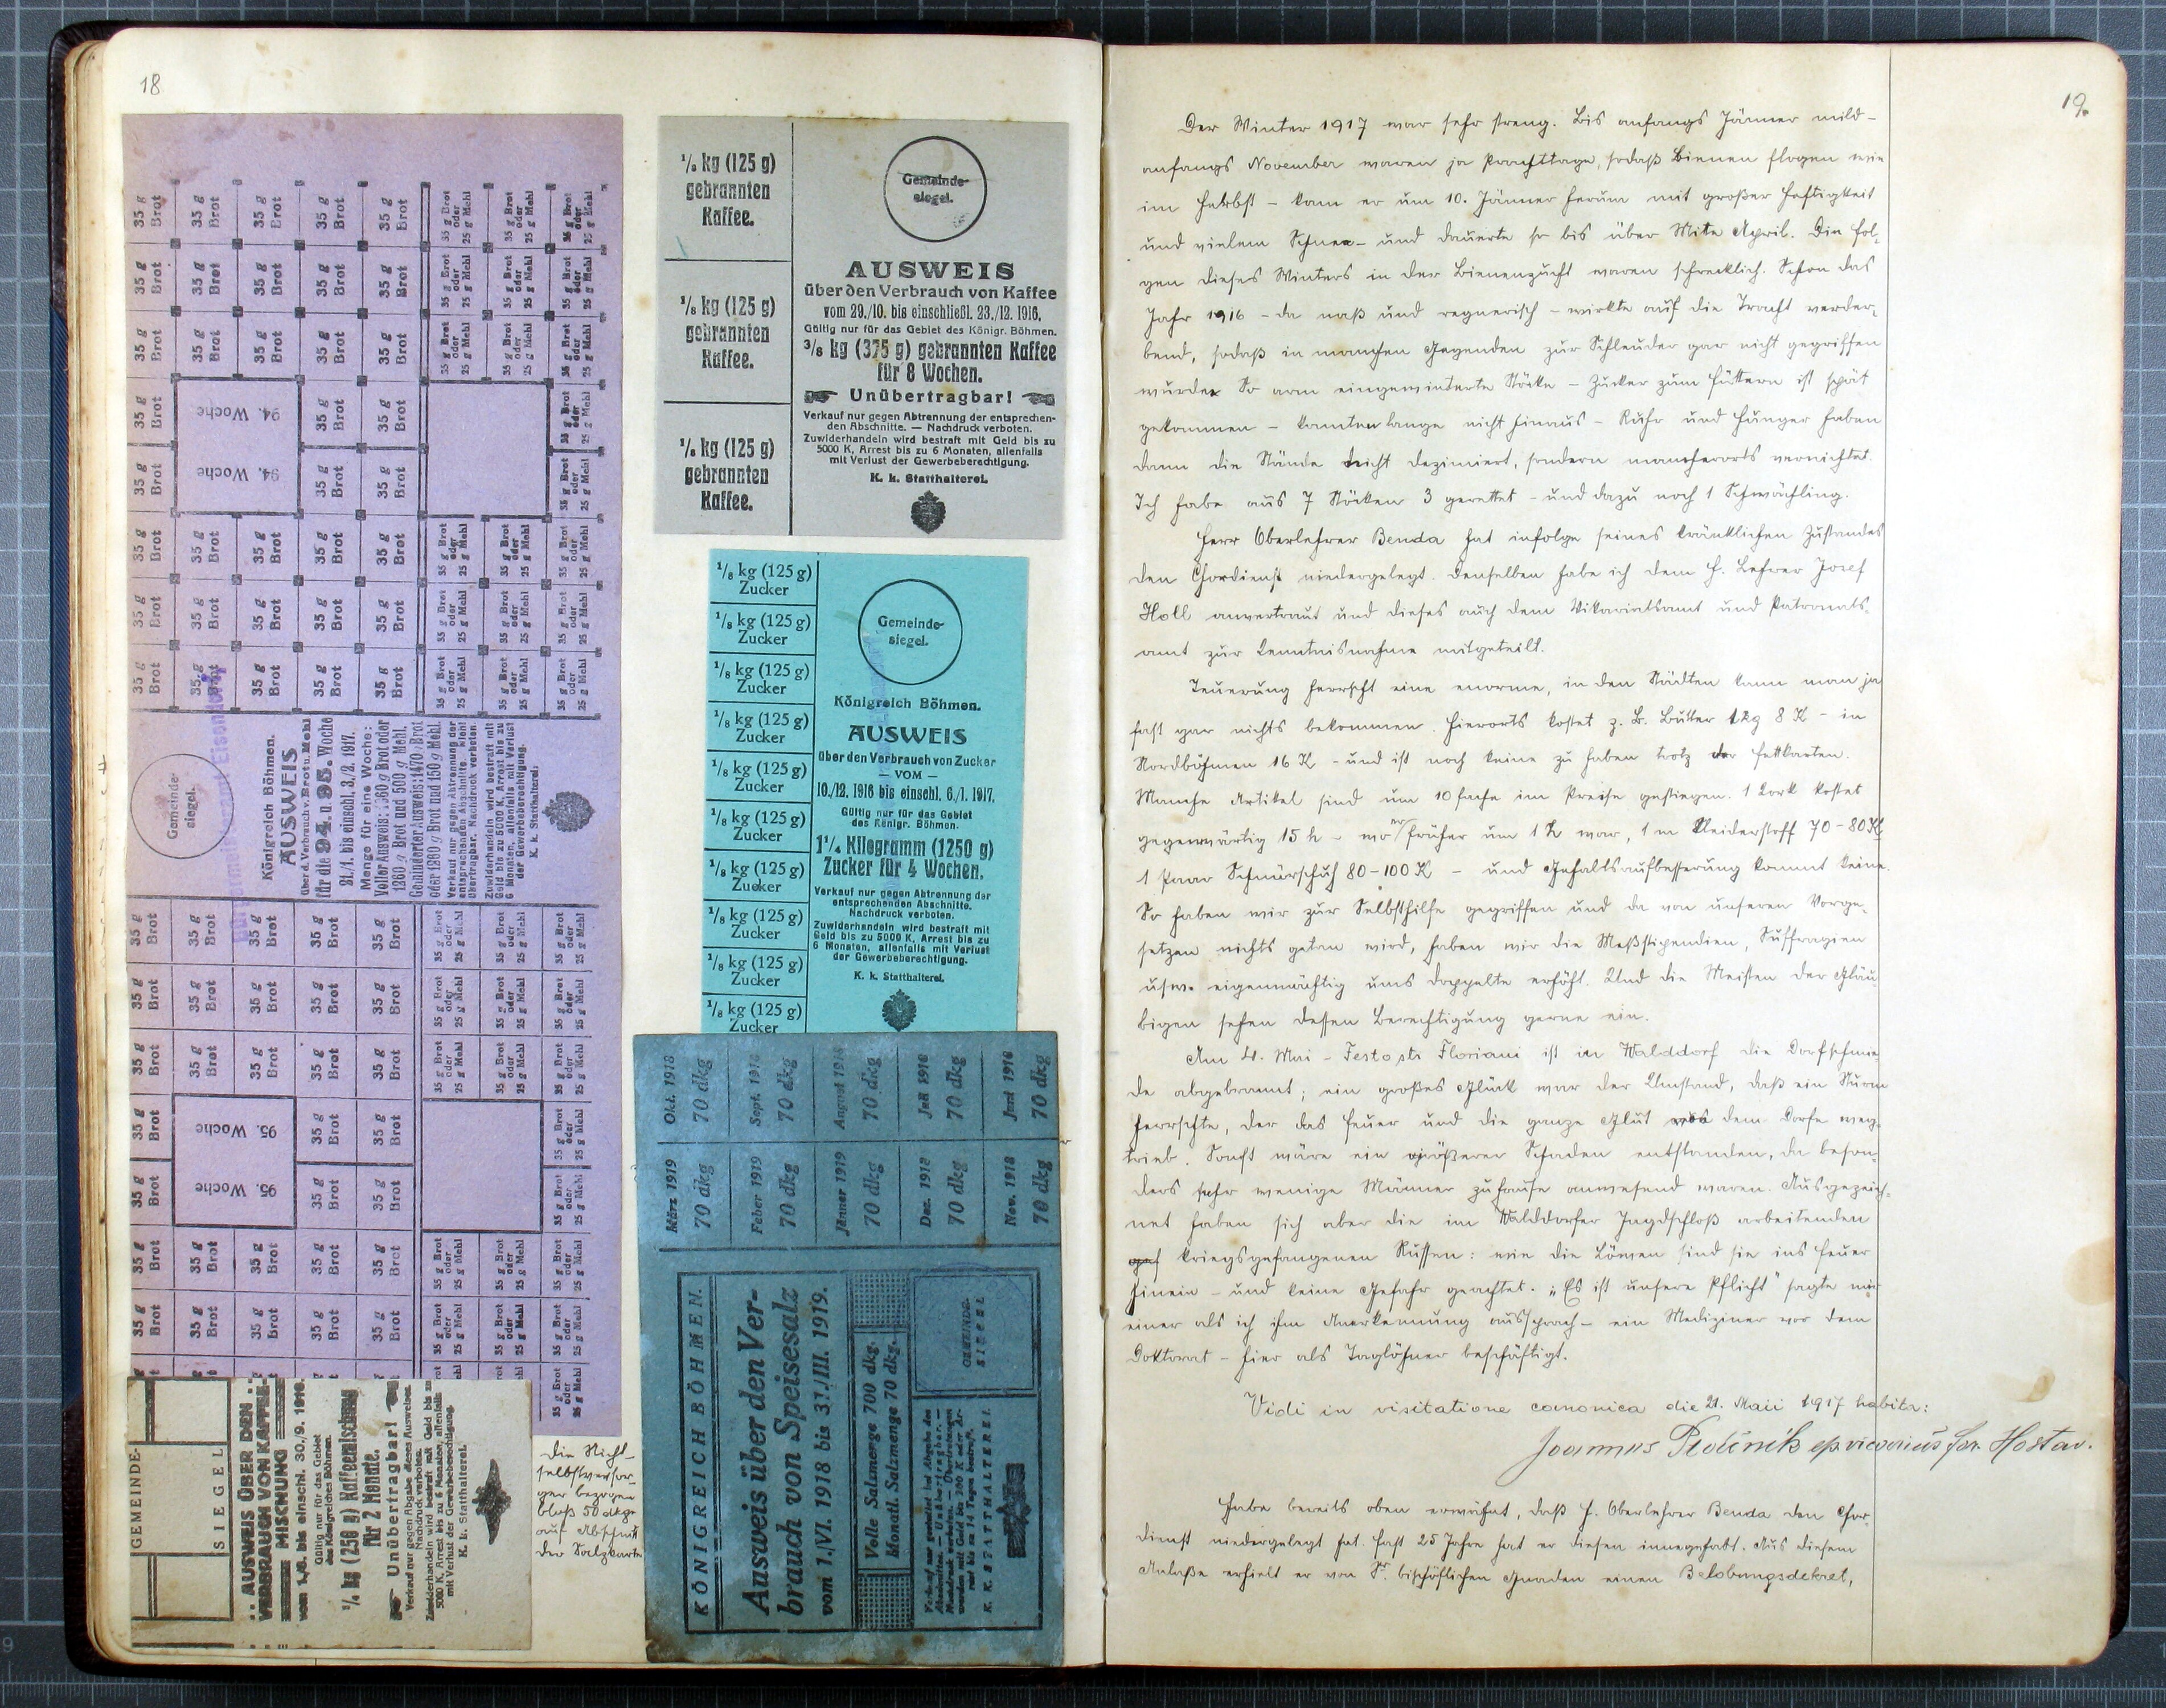 18
35 g Brot
35 g Brot oder 25 g Mehl
94. Woche
94. Woche
Gemeinde-
siegel.
Königreich Böhmen.
AUSWEIS
über d. Verbrauch v. Brot u. Mehl
für die 94. u. 95. Woche
21./1. bis einschl. 3./2. 1917.
Menge für eine Woche:
1260 g Brot und 500 g Mehl.
Verkauf nur gegen Abtrennung der
entsprechenden Abschnitte.
Zuwiderhandeln wird bestraft mit
Geld bis zu 5000 K, Arrest bis zu
6 Monaten, allenfalls mit Verlust
der Gewerbeberechtigung.
K. k. Statthalterei.
95. Woche
95. Woche
GEMEINDE-
SIEGEL
AUSWEIS ÜBER DEN
VERBRAUCH VON KAFFEE-
MISCHUNG
bis einschl. 30./9.
Gültig nur für das Gebiet
des Königreiches Böhmen.
1/4 kg (250 g) Kaffeemischung
für 2 Monate.
Unübertragbar!
Verkauf nur gegen Abgabe dieses Ausweises.
Nachdruck verboten.
Zuwiderhandeln wird bestraft mit Geld bis zu
5000 K, Arrest bis zu 6 Monaten, allenfalls
mit Verlust der Gewerbeberechtigung.
K. k. Statthalterei.
Die Nicht-
selbstversor-
ger bezogen
bloß 50 dkgr
auf Abschnitt
der Salzkarte
1/8 kg (125 g)
gebrannten
Kaffee.
1/8 kg (125 g)
gebrannten
Kaffee.
1/8 kg (125 g)
gebrannten
Kaffee.
Gemeinde-
siegel.
AUSWEIS
über den Verbrauch von Kaffee
vom 29./10. bis einschließl. 23./12. 1916.
Gültig nur für das Gebiet des Königr. Böhmen.
3/8 kg (375 g) gebrannten Kaffee
für 8 Wochen.
Unübertragbar!
Verkauf nur gegen Abtrennung der entsprechen-
den Abschnitte. — Nachdruck verboten.
Zuwiderhandeln wird bestraft mit Geld bis zu
5000 K, Arrest bis zu 6 Monaten, allenfalls
mit Verlust der Gewerbeberechtigung.
K. k. Statthalterei.
1/8 kg (125 g)
Zucker
1/8 kg (125 g)
Zucker
1/8 kg (125 g)
Zucker
1/8 kg (125 g)
Zucker
1/8 kg (125 g)
Zucker
1/8 kg (125 g)
Zucker
1/8 kg (125 g)
Zucker
1/8 kg (125 g)
Zucker
1/8 kg (125 g)
Zucker
1/8 kg (125 g)
Zucker
Gemeinde-
siegel.
Königreich Böhmen.
AUSWEIS
über den Verbrauch von Zucker
VOM —
10./12. 1916 bis einschl. 6./1. 1917.
Gültig nur für das Gebiet
des Königr. Böhmen.
1 1/4 Kilogramm (1250 g)
Zucker für 4 Wochen.
Verkauf nur gegen Abtrennung der
entsprechenden Abschnitte.
Nachdruck verboten.
Zuwiderhandeln wird bestraft mit
Geld bis zu 5000 K, Arrest bis zu
6 Monaten, allenfalls mit Verlust
der Gewerbeberechtigung.
K. k. Statthalterei.
Okt. 1918 70 dkg
Sept. 1918 70 dkg
August 1918 70 dkg
Juli 1918 70 dkg
Juni 1918 70 dkg
März 1919 70 dkg
Feber 1919 70 dkg
Jänner 1919 70 dkg
Dez. 1918 70 dkg
Nov. 1918 70 dkg
KÖNIGREICH BÖHMEN.
Ausweis über den Ver-
brauch von Speisesalz
vom 1./VI. 1918 bis 31./III. 1919.
Volle Salzmenge 700 dkg.
Monatl. Salzmenge 70 dkg.
GEMEINDE-
SIEGEL
K. K. STATTHALTEREI.
19.
Der Winter 1917 war sehr streng. Bis anfangs Jänner mild –
anfangs November waren ja Prachttage, sodaß Bienen flogen wie
im Herbst – kam er um 10. Jänner herum mit großer Heftigkeit
und vielem Schnee – und dauerte so bis über Mitte April. Die Fol-
gen dieses Winters in der Bienenzucht waren schrecklich. Schon das
Jahr 1916 – da naß und regnerisch – wirkte auf die Tracht verder-
bend, sodaß in manchen Gegenden zur Schleuder gar nicht gegriffen
wurde. So arm eingewinterte Stöcke – Zucker zum Füttern ist spät
gekommen – konnten lange nicht hinaus – Ruhr und Hunger haben
dann die Stände nicht dezimiert, sondern mancherorts vernichtet.
Ich habe aus 7 Stöcken 3 gerettet – und dazu noch 1 Schwächling.
Herr Oberlehrer Benda hat infolge seines kränklichen Zustandes
den Chordienst niedergelegt. Denselben habe ich dem H. Lehrer Josef
Holl anvertraut und dieses auch dem Vikariatsamt und Patronats-
amt zur Kenntnisnahme mitgeteilt.
Teuerung herrscht eine enorme, in den Städten kann man ja
fast gar nichts bekommen. Hierorts kostet z. B. Butter 1kg 8 K – in
Nordböhmen 16 K – und ist noch keine zu haben trotz der Fettkarten.
Manche Artikel sind um 10fache im Preise gestiegen. 1 Kork kostet
gegenwärtig 15 h – wo er früher um 1 h war, 1 m Kleiderstoff 70–80K
1 Paar Schnürschuh 80–100 K – und Gehaltsaufbesserung kommt keine.
So haben wir zur Selbsthilfe gegriffen und da von unseren Vorge-
setzen nichts getan wird, haben wir die Meßstipendien, Suffragien
usw. eigenmächtig ums doppelte erhöht. Und die Meisten der Gläu-
bigen sehen dessen Berechtigung gerne ein.
Am 4. Mai – Festo sti Floriani ist in Walddorf die Dorfschmie-
de abgebrannt; ein großes Glück war der Umstand, daß ein Sturm
herrschte, der das Feuer und die ganze Glut dem Dorfe weg-
trieb. Sonst wäre ein größerer Schaden entstanden, da beson-
ders sehr wenige Männer zuhause anwesend waren. Ausgezeich-
net haben sich aber die im Walddorfer Jagdschloß arbeitenden
kriegsgefangenen Russen: wie die Löwen sind sie ins Feuer
hinein – und keine Gefahr geachtet. „Es ist unsere Pflicht" sagte mir
einer als ich ihm Anerkennung aussprach – ein Mediziner vor dem
Doktorat – hier als Taglöhner beschäftigt.
Vidi in visitatione canonica die 21. Maii 1917 habita:
Joannes eps vicarius for. Hostav.
Habe bereits oben erwähnt, daß H. Oberlehrer Benda den Chor-
dienst niedergelegt hat. Fast 25 Jahre hat er diesen innegehabt. Aus diesem
Anlaße erhielt er von Sr. bischöflichen Gnaden einen Belobungsdekret,